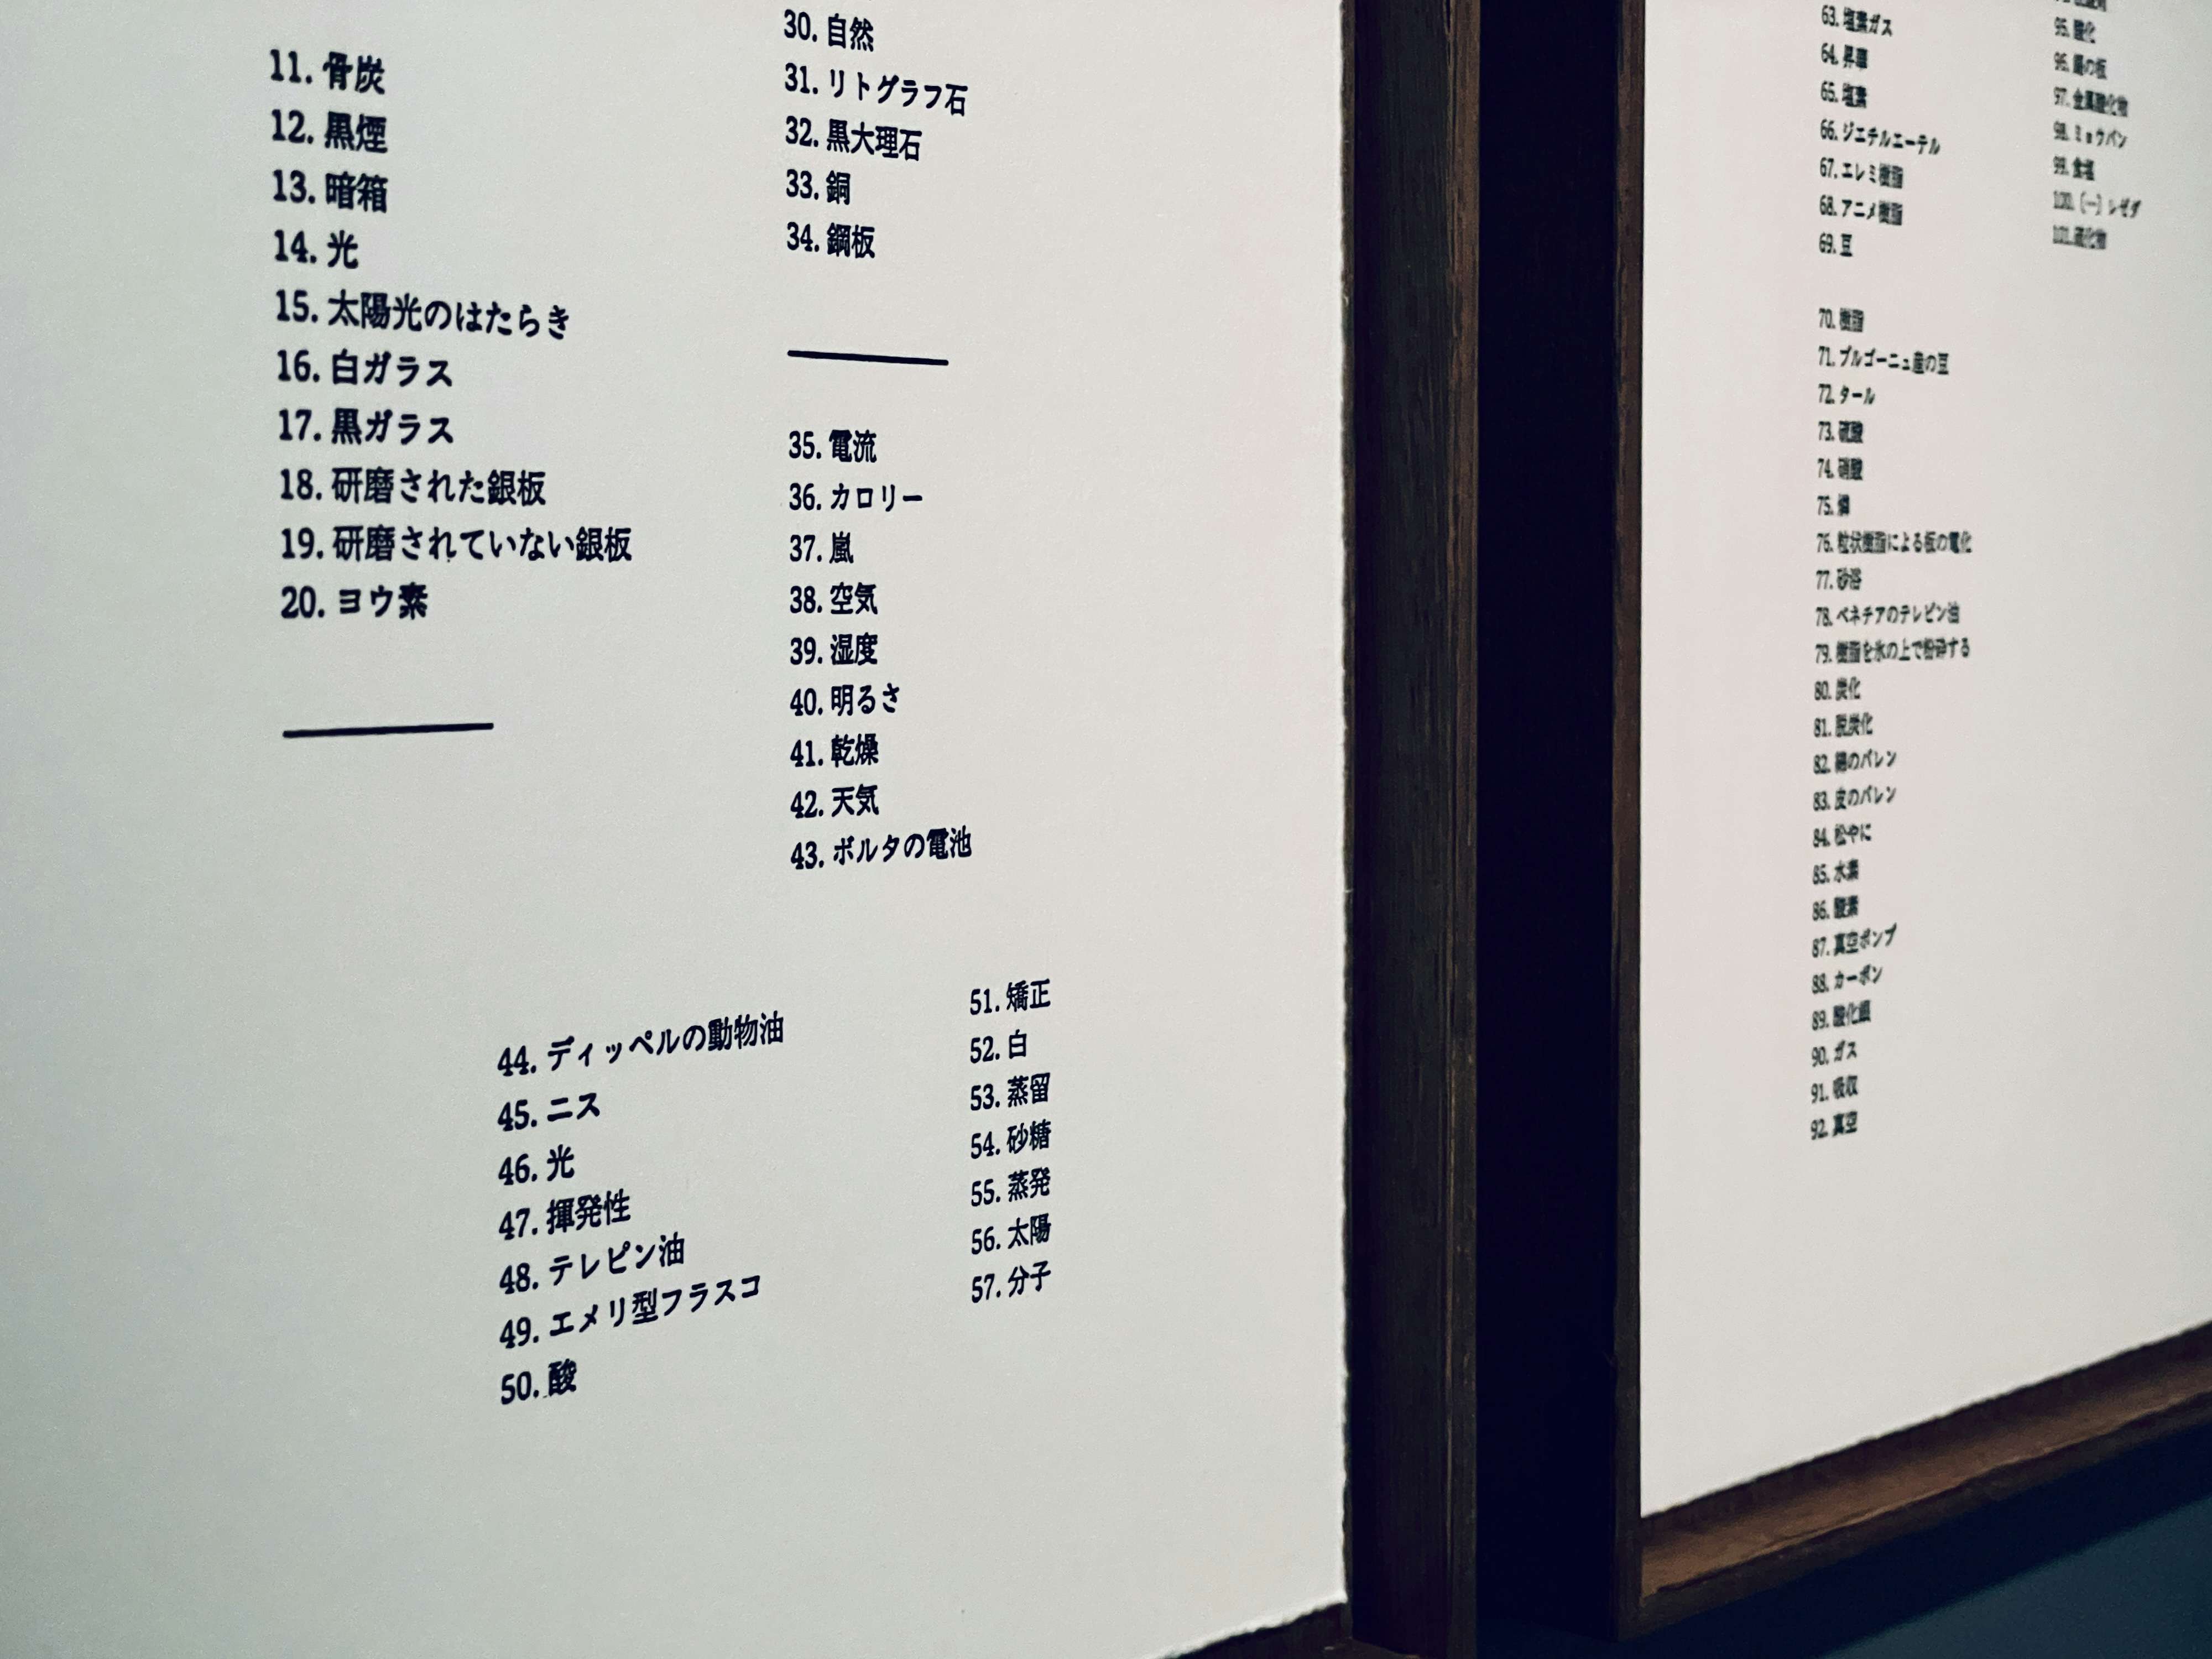 11. 骨炭
12. 黒煙
13. 暗箱
14. 光
15. 太陽光のはたらき
16. 白ガラス
17. 黒ガラス
18. 研磨された銀板
19. 研磨されていない銀板
20. ヨウ素
30. 自然
31. リトグラフ石
32. 黒大理石
33. 銅
34. 鋼板
35. 電流
36. カロリー
37. 嵐
38. 空気
39. 湿度
40. 明るさ
41. 乾燥
42. 天気
43. ボルタの電池
44. ディッペルの動物油
45. ニス
46. 光
47. 揮発性
48. テレピン油
49. エメリ型フラスコ
50. 酸
51. 矯正
52. 白
53. 蒸留
54. 砂糖
55. 蒸発
56. 太陽
57. 分子
63. 塩素ガス
64. 昇華
65. 塩素
66. ジエチルエーテル
67. エレミ樹脂
68. アニメ樹脂
69. 豆
70. 樹脂
71. ブルゴーニュ産の豆
72. タール
73. 硫酸
74. 硝酸
75. 燐
76. 粒状樹脂による板の電化
77. 砂浴
78. ベネチアのテレピン油
79. 樹脂を氷の上で粉砕する
80. 炭化
81. 脱炭化
82. 綿のバレン
83. 皮のバレン
84. 松やに
85. 水素
86. 酸素
87. 真空ポンプ
88. カーボン
89. 酸化銀
90. ガス
91. 吸収
92. 真空
95. 酸化
96. 錫の板
97. 金属酸化物
98. ミョウバン
99. 食塩
100. (一) レゼダ
101. 硫化物